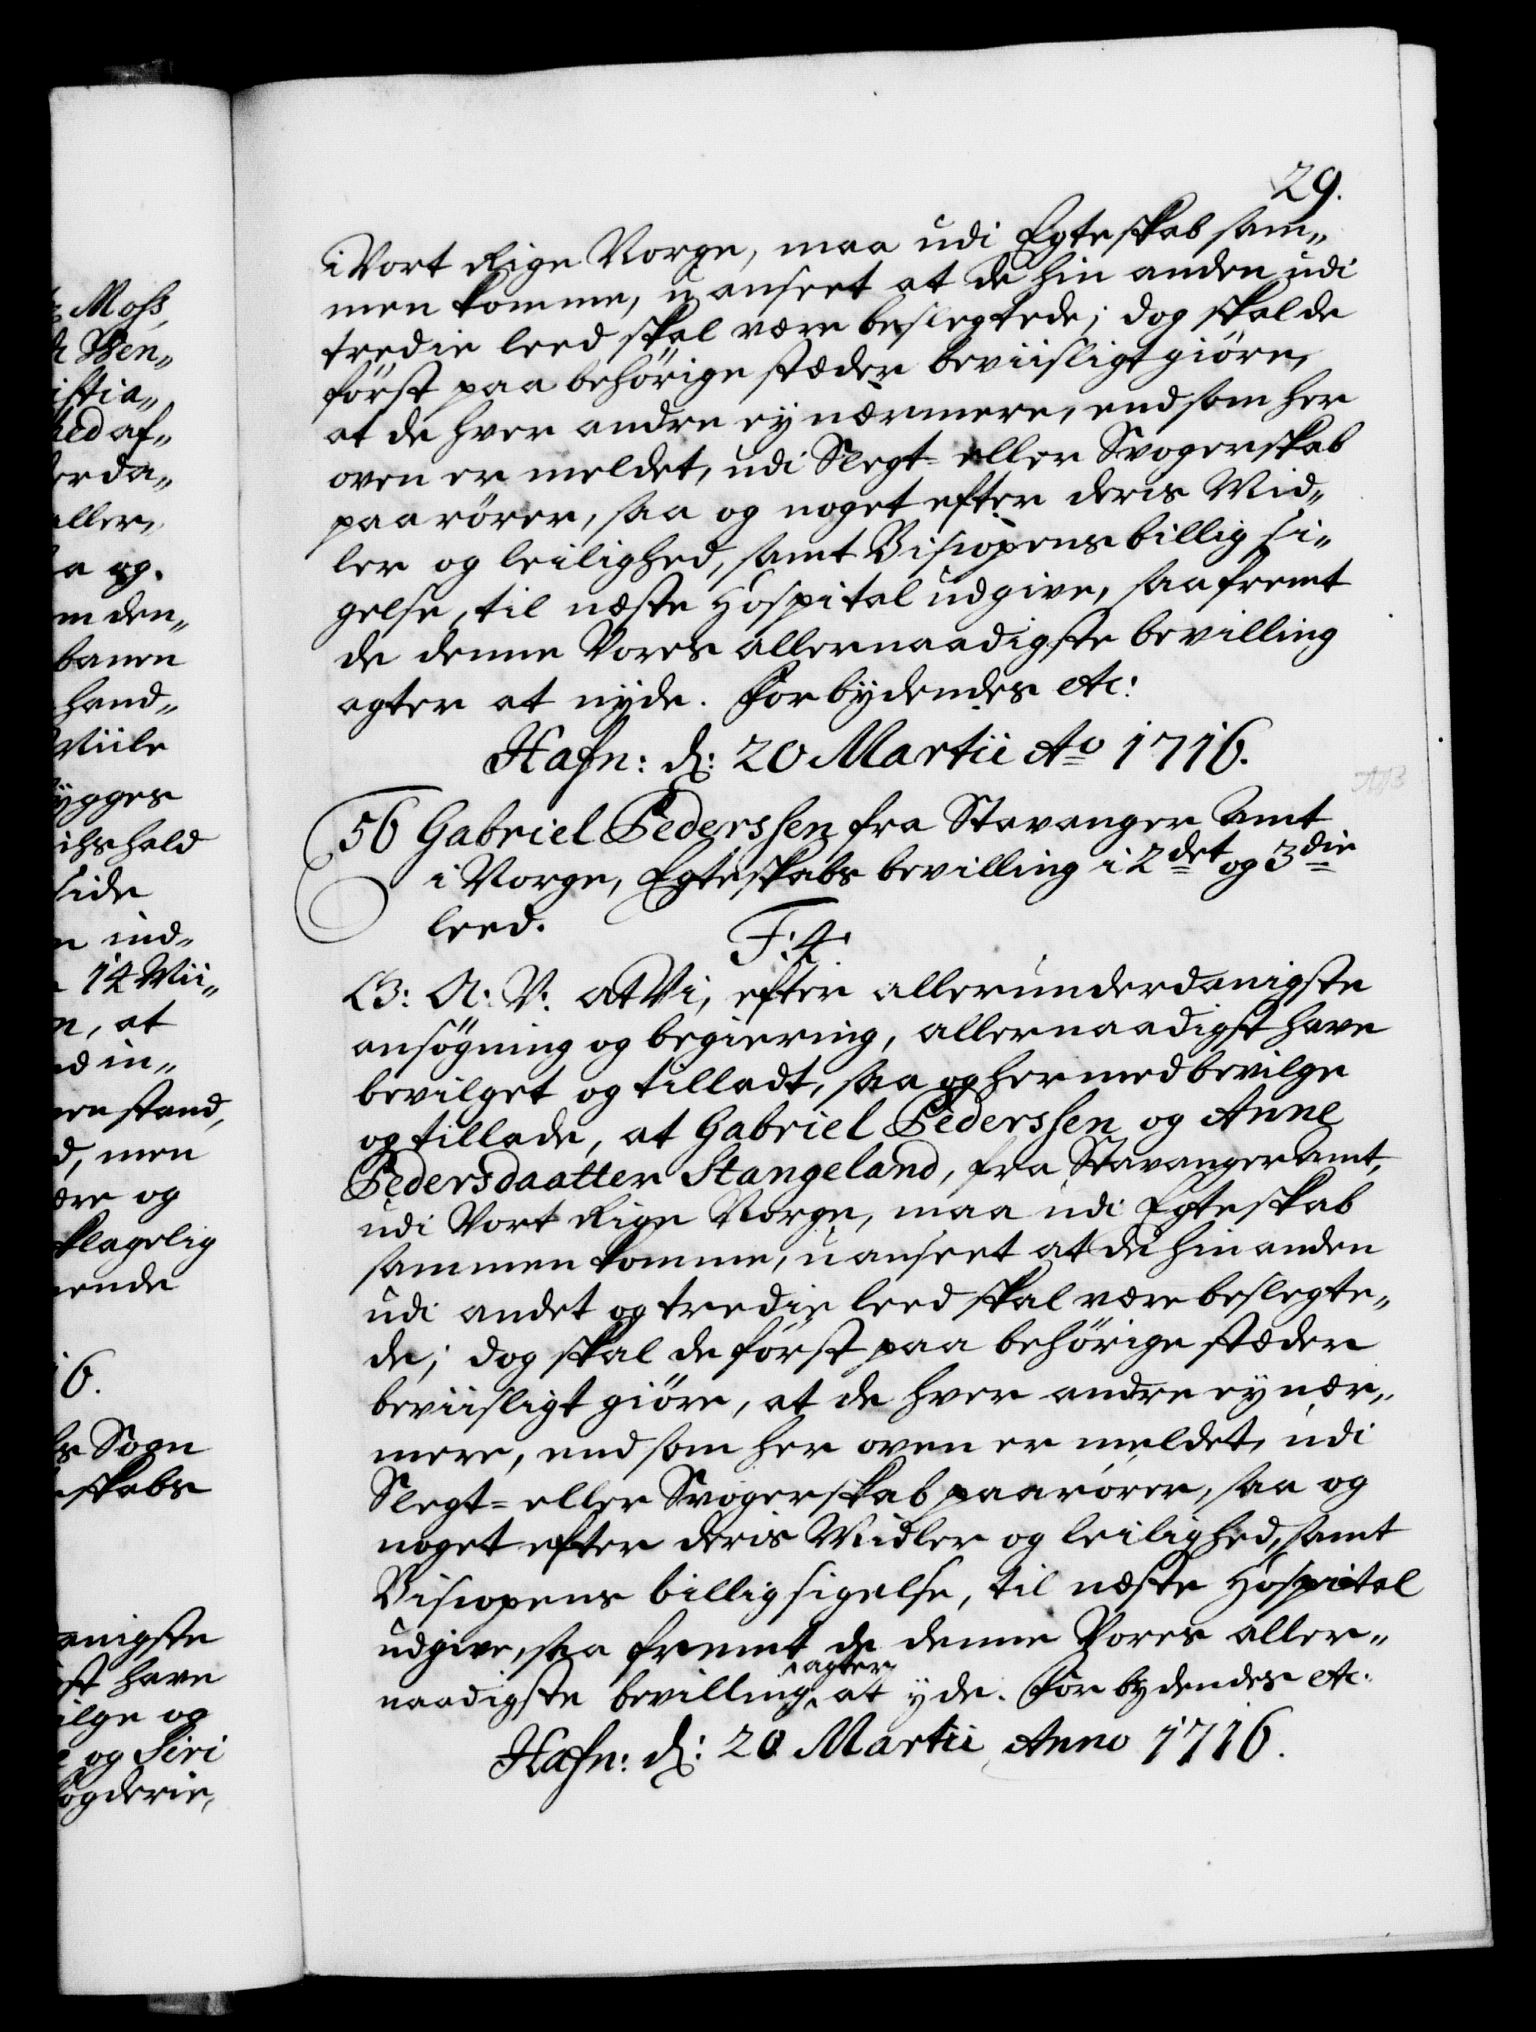 29.
i Vort Rige Norge, maa udi Egteskab sam„
men komme, uanseet at de hin anden udi
tredie leed skal være beslegtede; dog skal de
först paa behörige stæder beviisligt giöre,
at de hver andre ey nærmere, end som her
oven er meldet, udi Slegt- eller Svogerskab
paarörer, saa og noget efter deris Mid„
ler og leilighed, samt Biscopens billig si„
gelse, til næste Hospital udgive, saa fremt
de denne Vores allernaadigste bevilling
agter at nÿde. Forbÿdendes etc:
Hafn: d: 20 Martii Ao 1716.
56 Gabriel Pederssen fra Stavanger Amt
i Norge, Egteskabs bevilling i 2det og 3die
leed.
F: 4:
G: A: V: at Vi, efter allerunderdanigste
ansögning og begiering, allernaadigst have
bevilget og tilladt, saa og hermed bevilge
og tillade, at Gabriel Pederssen og Anne
Pedersdaatter Stangeland, fra Stavanger Amt,
udi Vort Rige Norge, maa udi Egteskab
sammen komme, uanseet at de hin anden
udi andet og tredie leed skal være beslegte„
de; dog skal de först paa behörige stæder
beviisligt giöre, at de hver andre ey nær„
mere, end som her oven er meldet, udi
Slegt- eller Svogerskab paarörer, saa og
noget efter deris Midler og leilighed, samt
Biscopens billig sigelse, til næste Hospital
udgive, saa fremt de denne Vores aller„
naadigste bevilling agter at nÿde. Forbydendes etc:
Hafn: d: 20 Martii Anno 1716.
Moss,
istia„
ed af„
erda„
aller,
a og.
m den„
banen
hand„
Miile
ÿgges
ihshald
side
n ind„
14 Mii„
n, at
d in„
enstand,
d, men
ære og
klagelig
ende
6.
s Sogn
skabs
anigste
st have
ilge og
og Siri
ogderie,